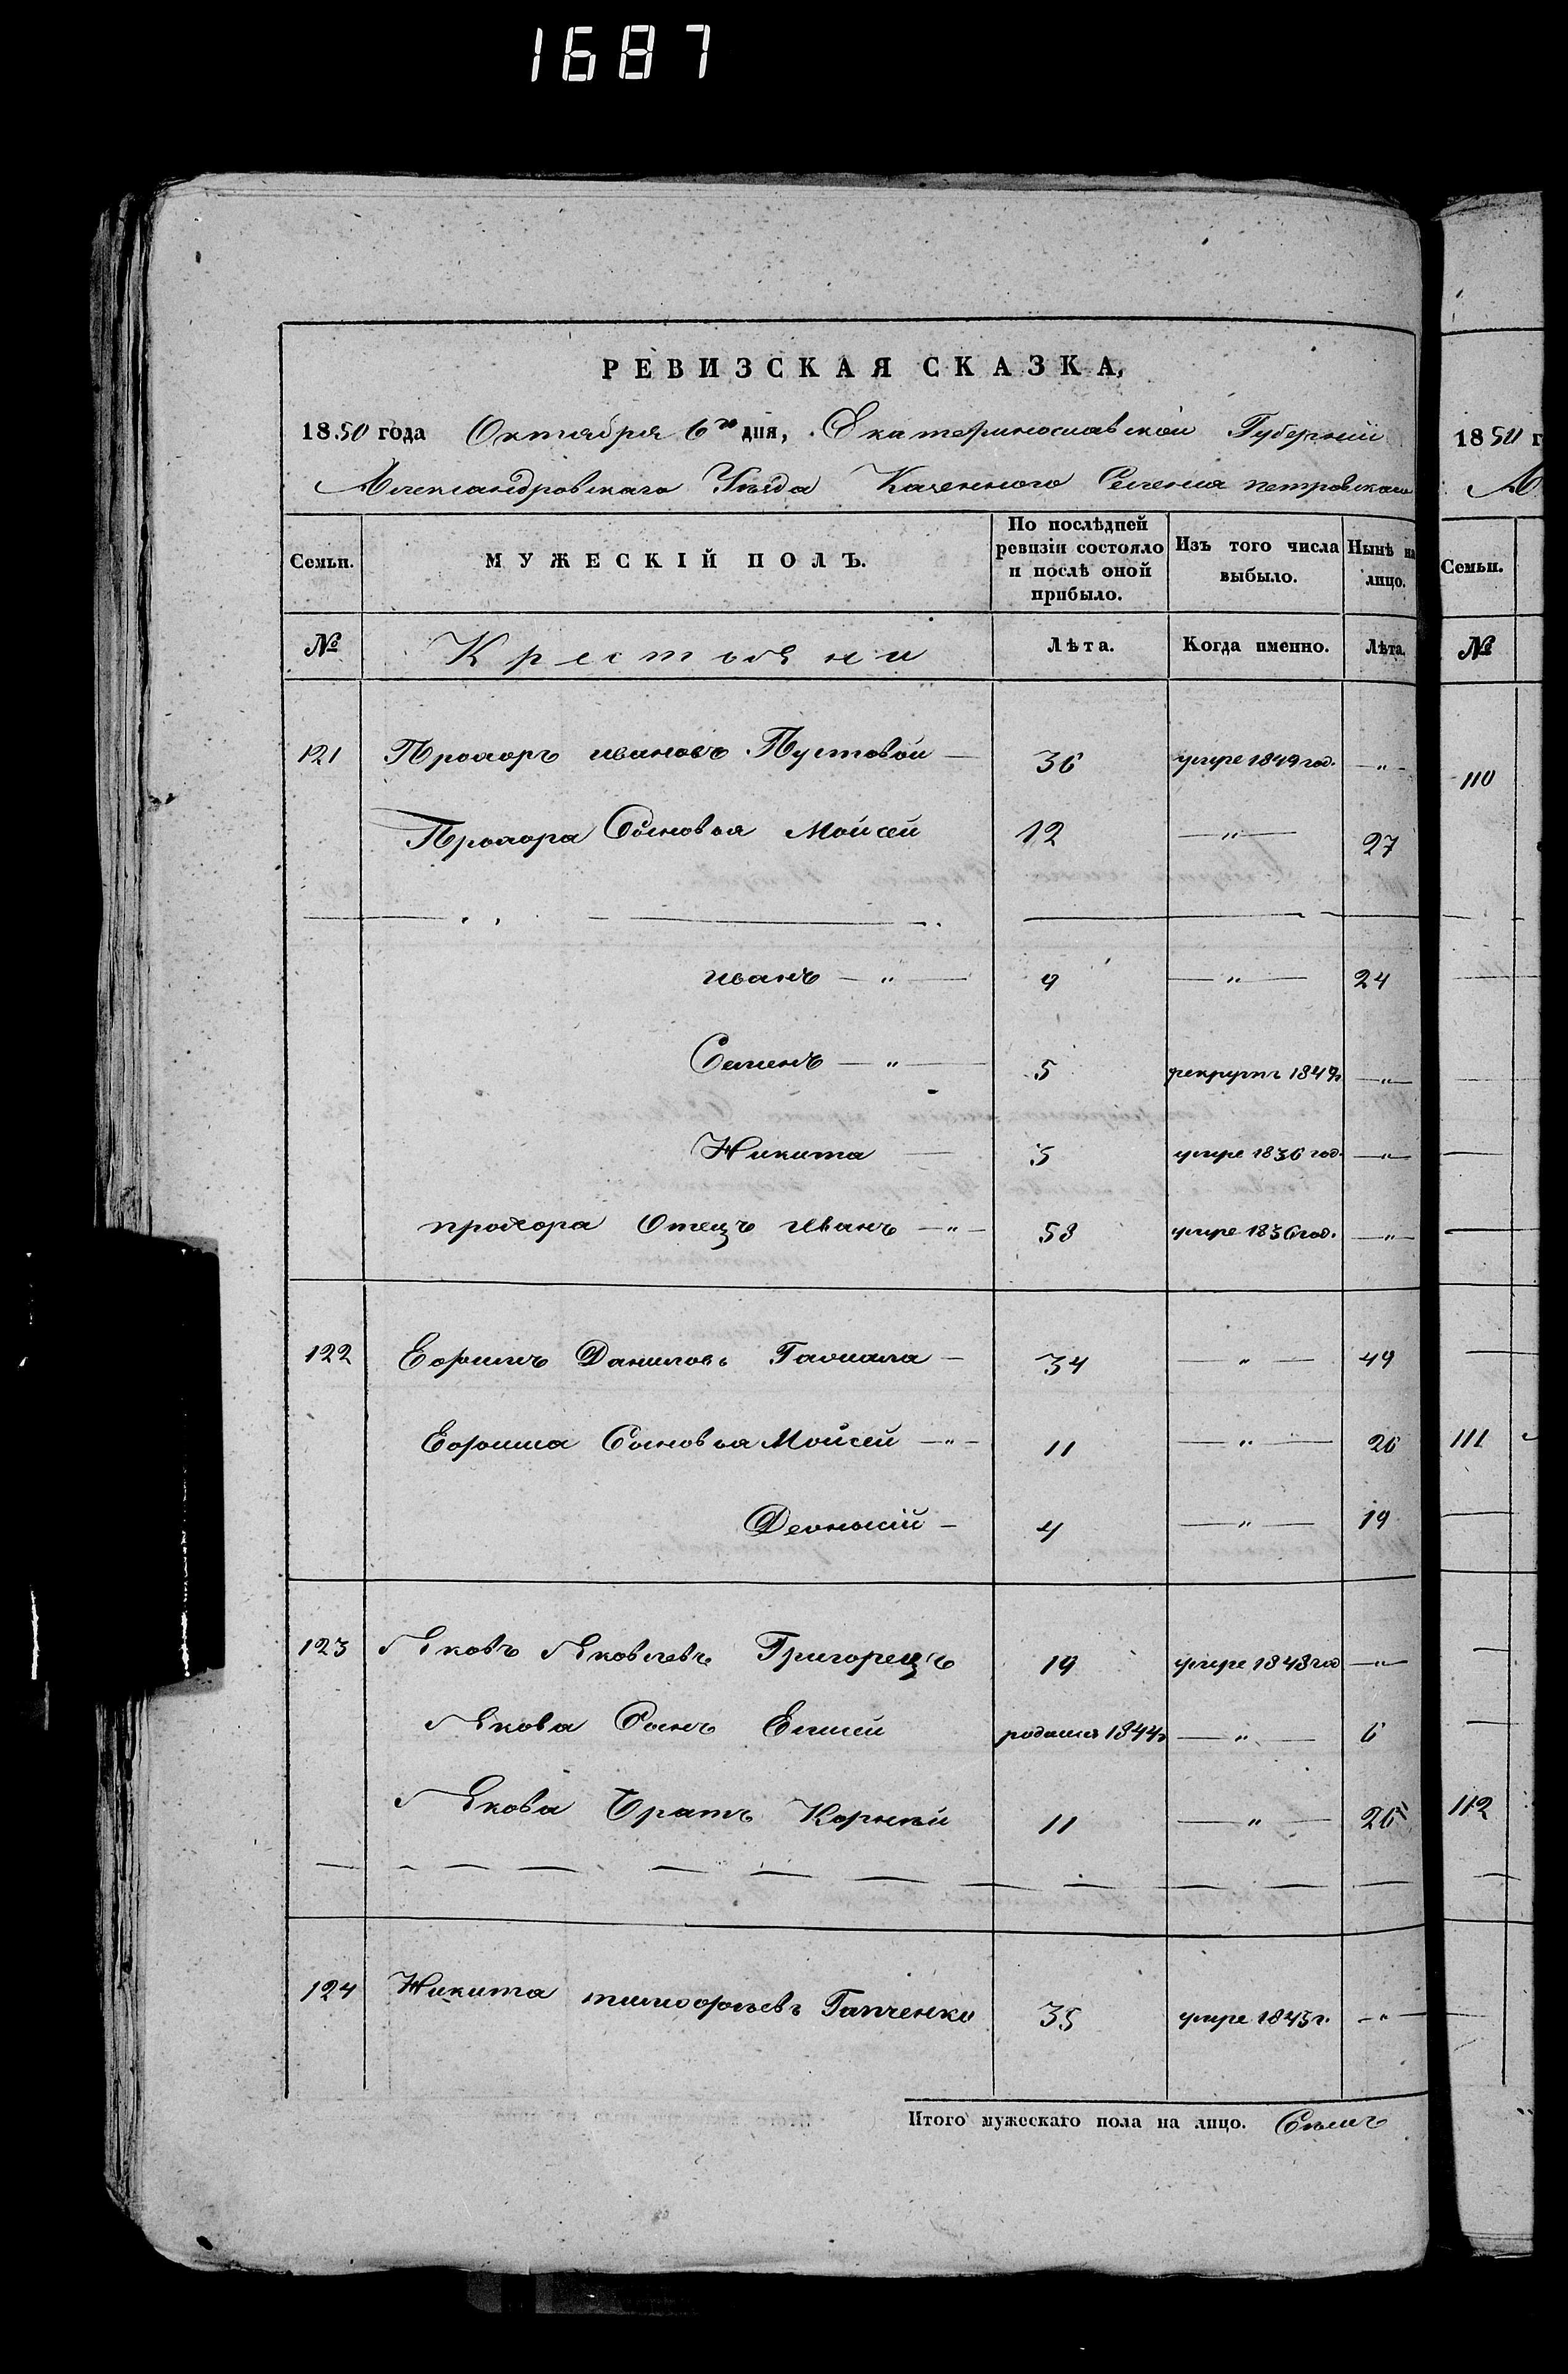 1687
РЕВИЗСКАЯ СКАЗКА,
1850 года Октября 6го дня, Екатеринославской Губернии
Александровскаго Уезда Казенного Селения петровскаго
Семьи. МУЖЕСКІЙ ПОЛЪ. По послѣдней ревизіи состояло и послѣ оной прибыло. Изъ того числа выбыло. Нынѣ на лицо.
№ Крестьяни Лѣта. Когда именно. Лѣта.
121 Прохоръ ивановъ Пустовой — 36 умре 1849 год. — " —
Прохора Сыновья Мойсей 12 — " — 27
иванъ — " — 9 — " — 24
Семенъ — " — 5 рекрутъ 1849г — " —
Никита — 3 умре 1836 год. — " —
прохора Отецъ Иванъ — " — 58 умре 1836 год. — " —
122 Ефимъ Даниловъ — 34 — " — 49
Ефима Сыновья Мойсей — " — 11 — " — 26
Деонисій — 4 — " — 19
123 Яковъ Яковлевъ Григорецъ 19 умре 1848 год — " —
Якова Сынъ Елисей родился 1844г — " — 6
Якова Братъ Корнѣй 11 — " — 26
124 Никита тимофеевъ Гапченко 35 умре 1845г. — " —
Итого мужескаго пола на лицо. Семъ
1850 г
Семьи.
№
110
111
112